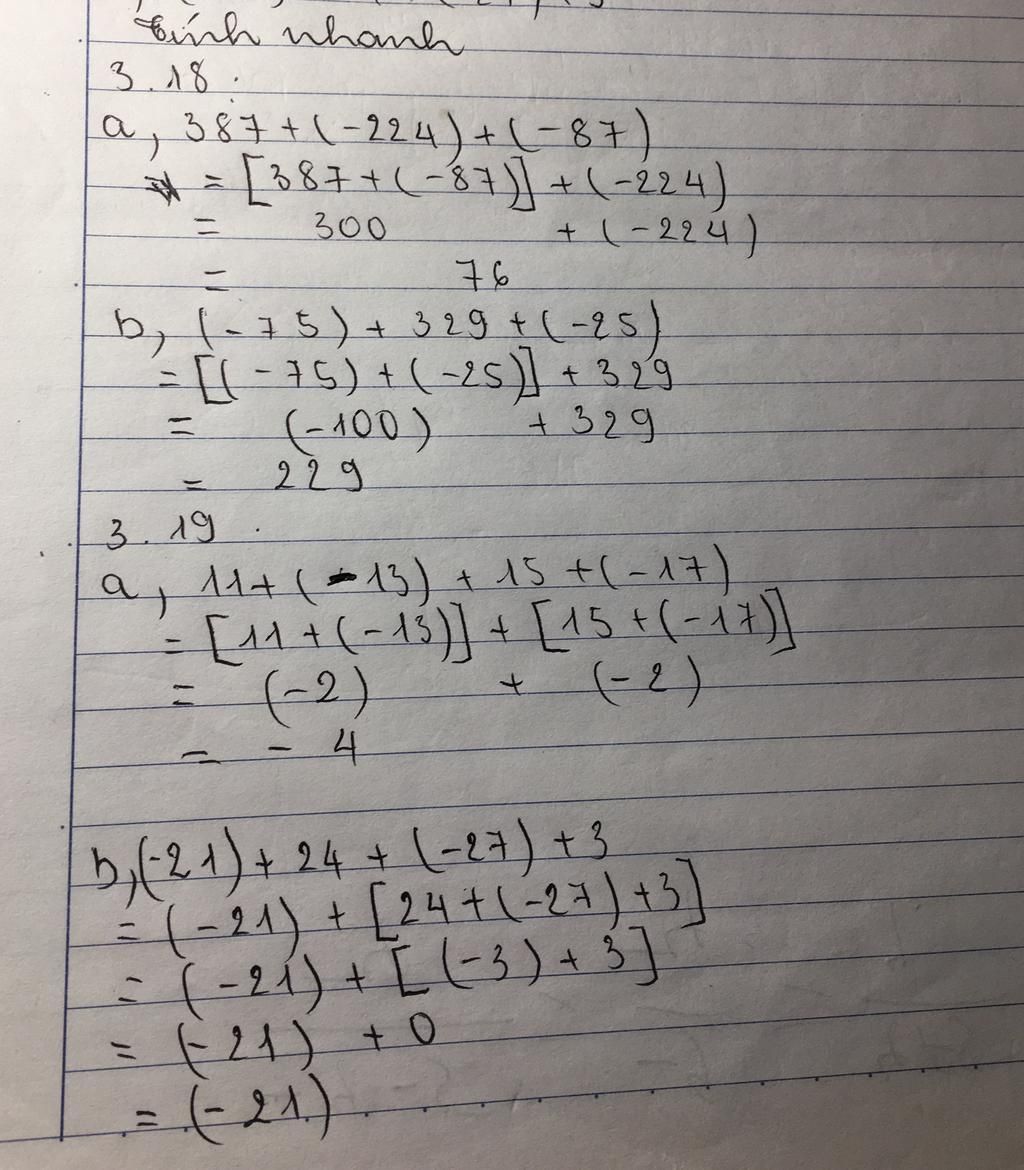 tính nhanh
3.18.
a, 387 + (-224) + (-87)
= [387 + (-87)] + (-224)
= 300 + (-224)
= 76
b, (-75) + 329 + (-25)
= [(-75) + (-25)] + 329
= (-100) + 329
= 229
3.19.
a, 11 + (-13) + 15 + (-17)
= [11 + (-13)] + [15 + (-17)]
= (-2) + (-2)
= - 4
b, (-21) + 24 + (-27) + 3
= (-21) + [24 + (-27) + 3]
= (-21) + [(-3) + 3]
= (-21) + 0
= (-21)